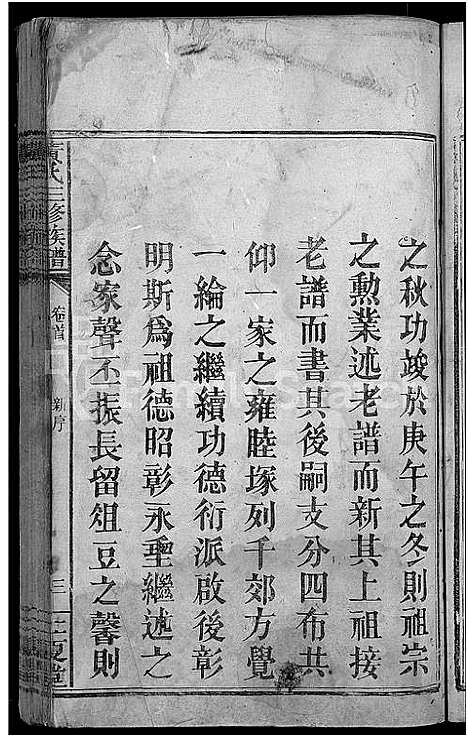 之秋功竣於庚午之冬則祖宗
之勲業述老譜而新其上祖接
老譜而書其後嗣支分四布共
仰一家之雍睦塚列千郊方覺
一綸之繼續功德衍派啟後彰
明斯爲祖德昭彰永垂繼述之
念家聲丕振長留俎豆之馨則
黄氏三修族譜
卷首
新序
三
三夏堂